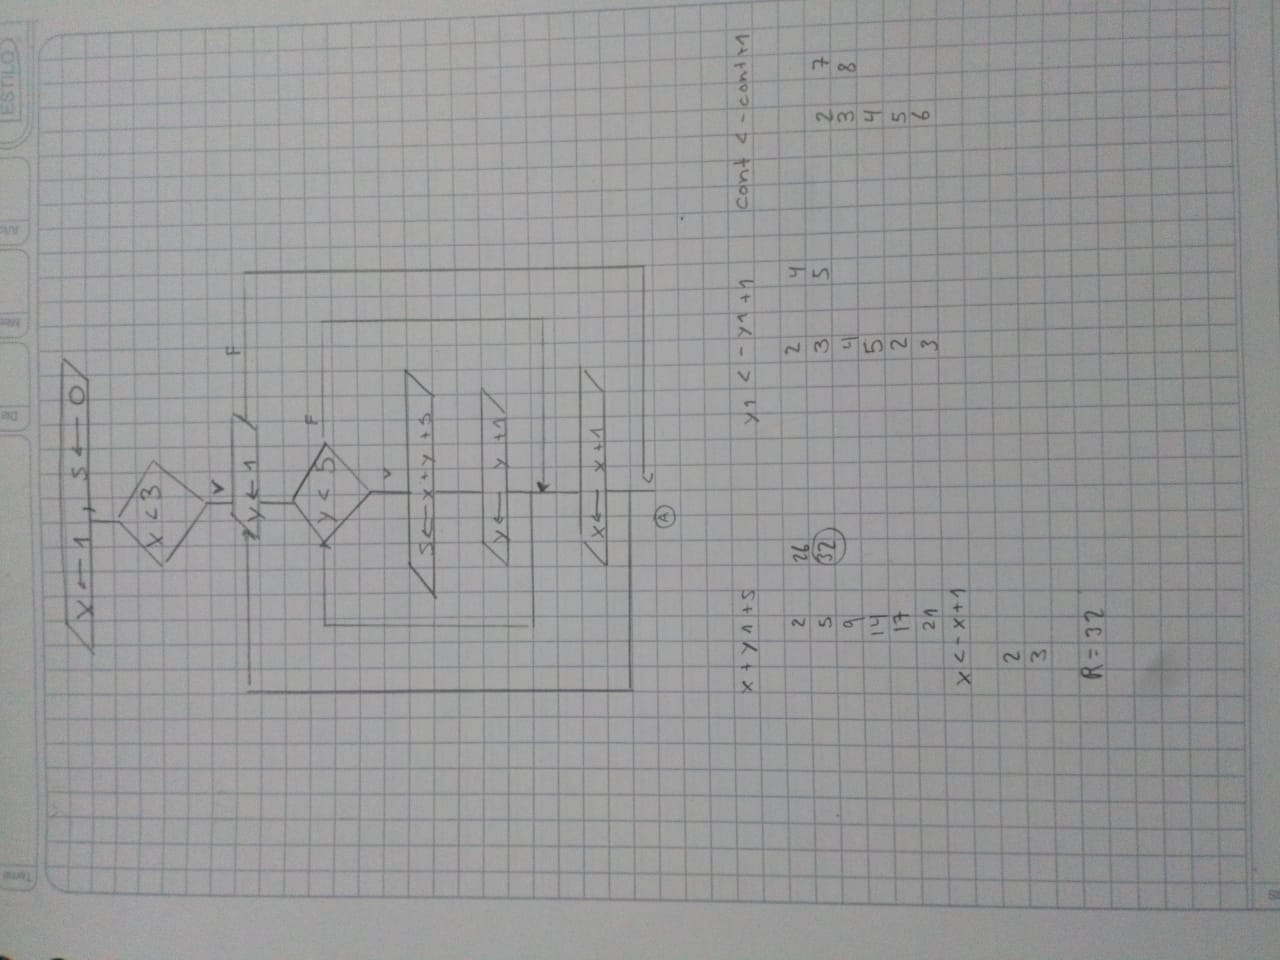 x ← 1, s ← 0
x < 3
V
F
y ← 1
y < 5
F
V
s ← x + y + s
y ← y + 1
x ← x + 1
A
x + y1 + s
2 26
5 32
9
14
17
21
x <- x + 1
2
3
R = 32
y1 <- y1 + 1
2 4
3 5
4
5
2
3
cont <- cont + 1
2 7
3 8
4
5
6
ESTILO
Tema